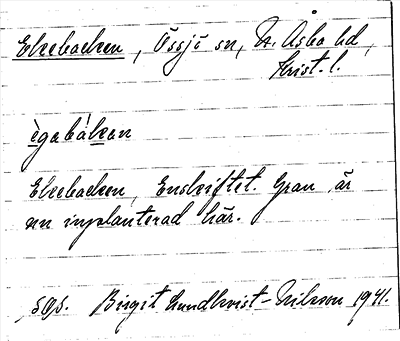 Ekebacken, Össjö sn, N. Åsbo hd,
Krist. l.
ègabákan
Ekebacken, Enskiftet. Gran är
nu inplanterad här.
Birgit Lundkvist-Nilsson 1941.